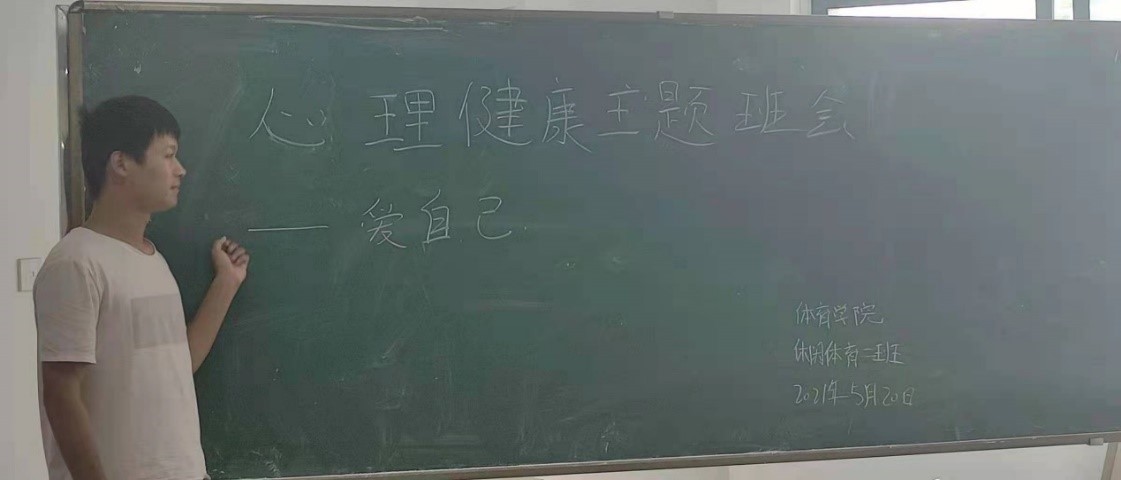 心理健康主题班会
—— 爱自己
体育学院
休闲体育二班
2021年5月20日